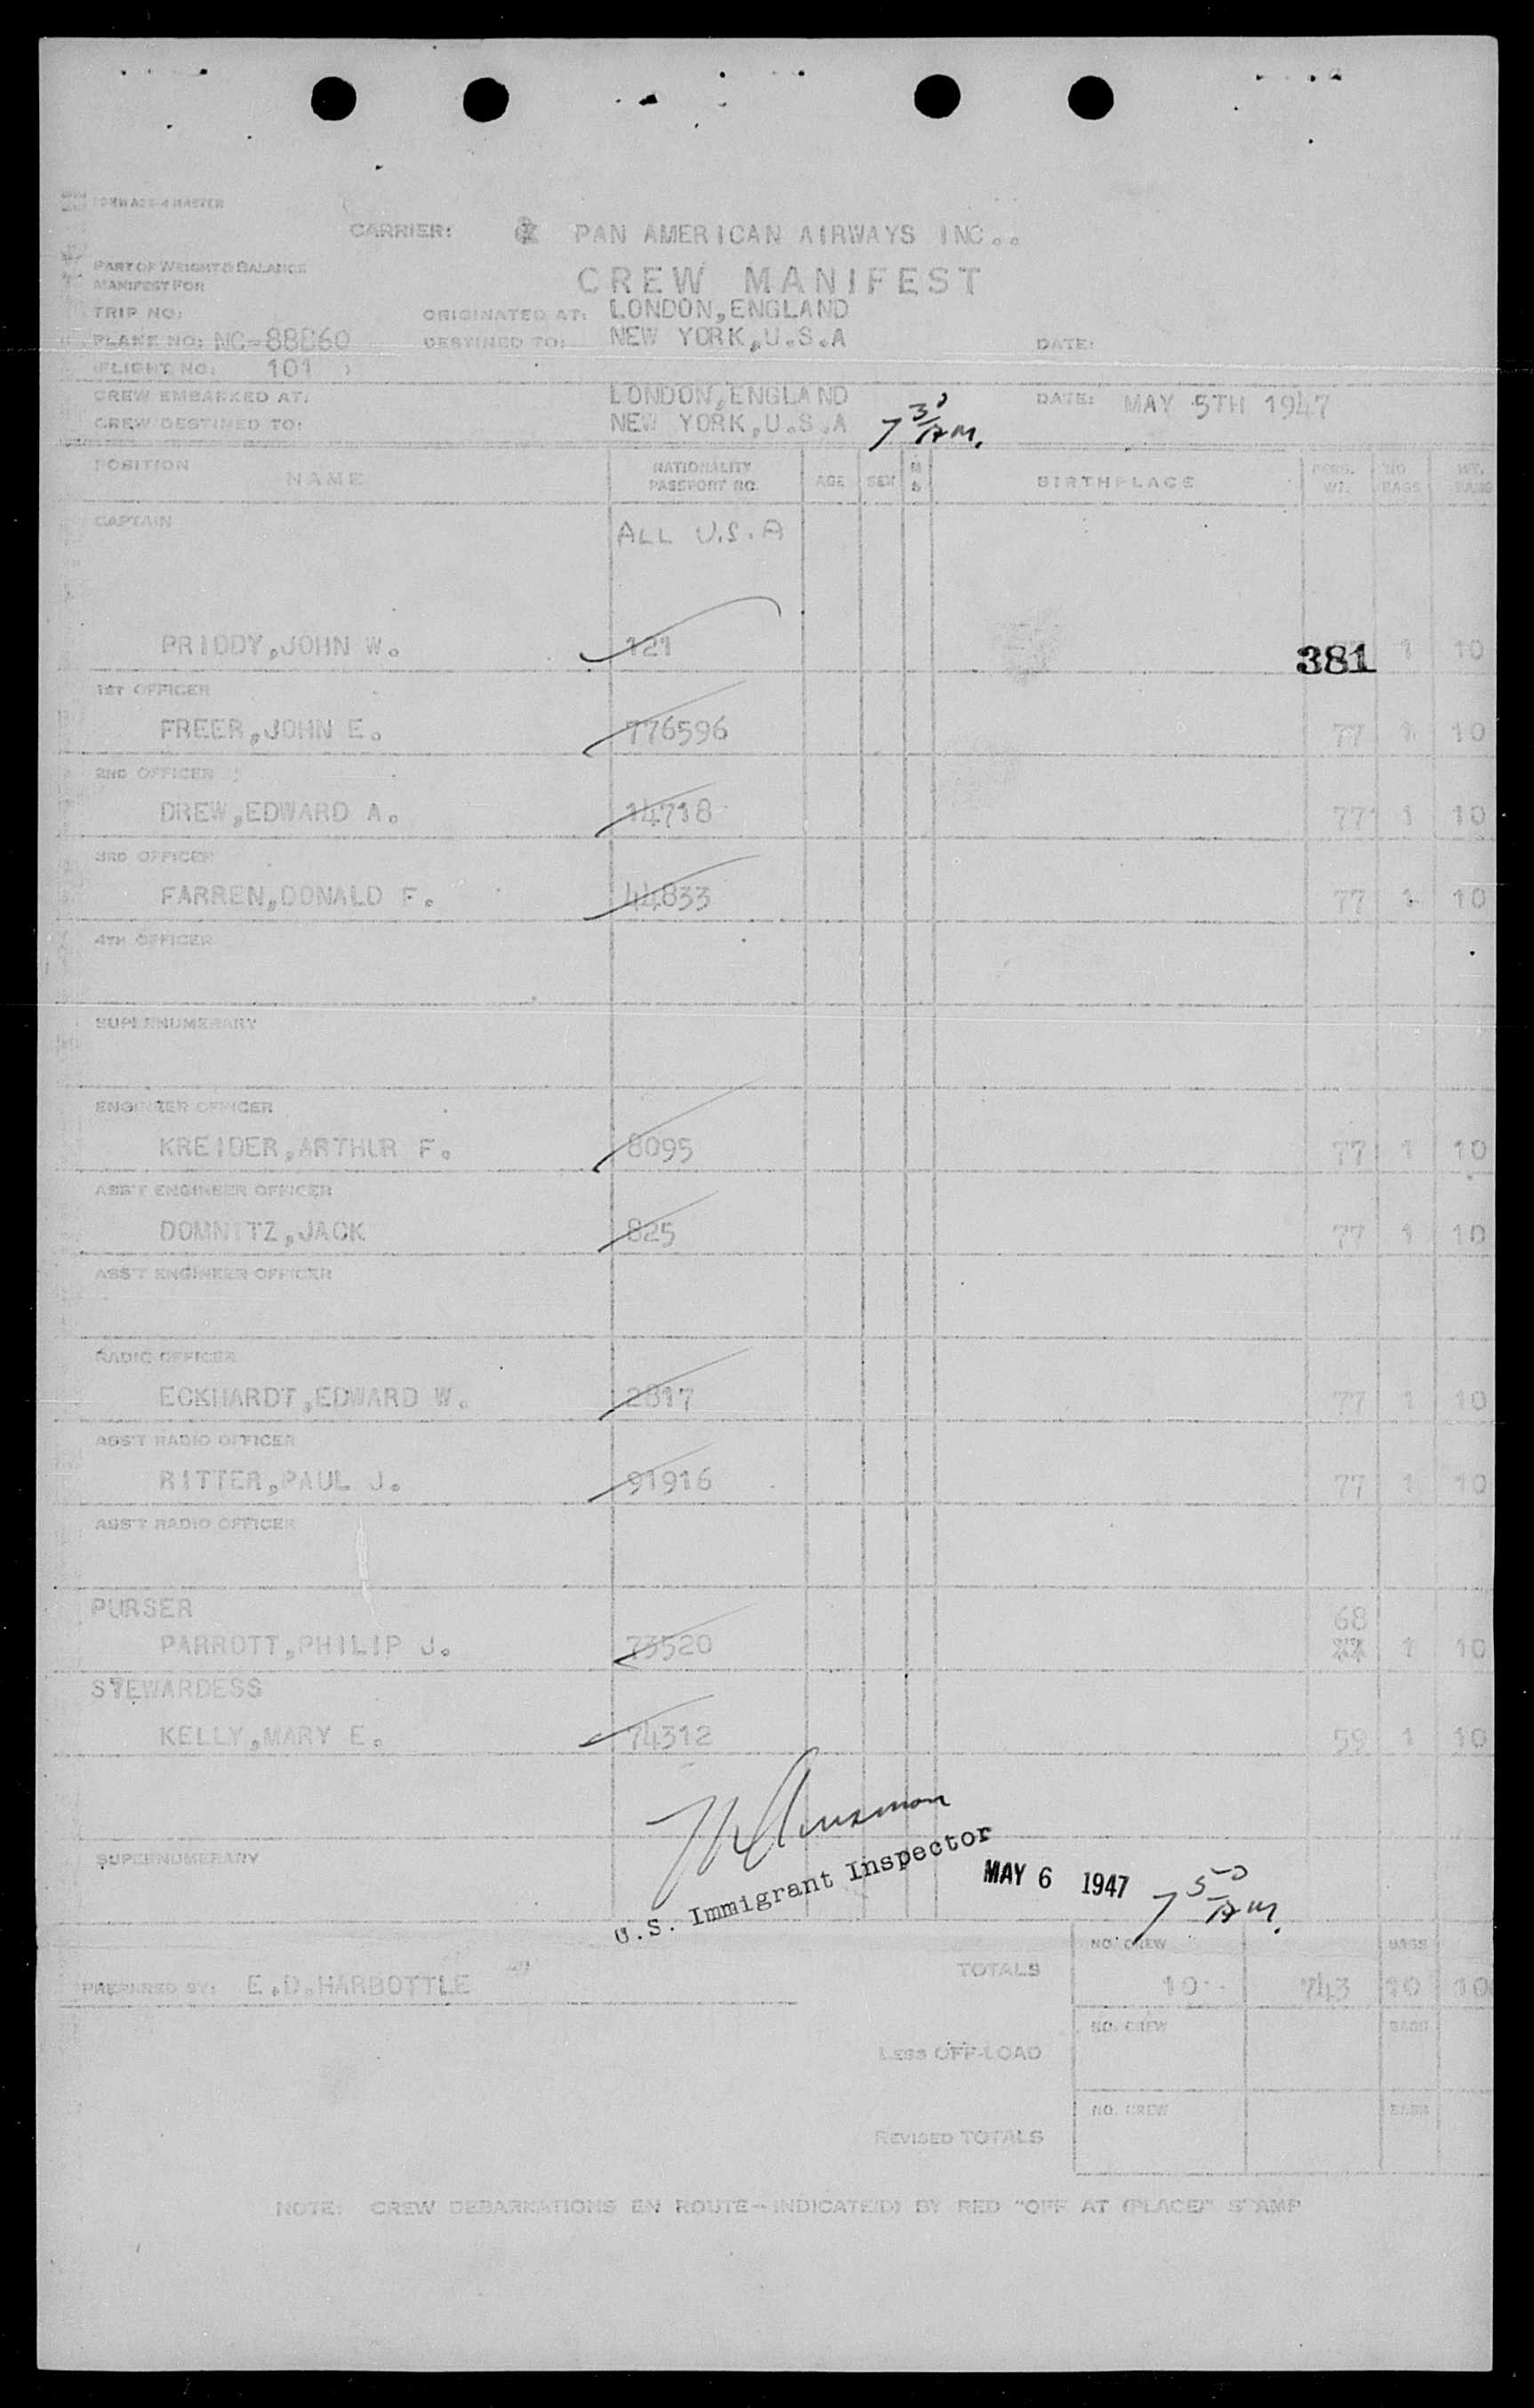 FORM ACS-4 MASTER
CARRIER: PAN AMERICAN AIRWAYS INC..
PART OF WEIGHT & BALANCE
MANIFEST FOR
CREW MANIFEST
TRIP NO: ORIGINATED AT: LONDON,ENGLAND
PLANE NO: NC-88860 DESTINED TO: NEW YORK,U.S.A DATE:
(FLIGHT NO: 101 )
CREW EMBARKED AT: LONDON,ENGLAND DATE: MAY 5TH 1947
CREW DESTINED TO: NEW YORK,U.S.A 7 30 AM.
POSITION NAME NATIONALITY PASSPORT NO. AGE SEX M S BIRTHPLACE PERS. WT. NO. BAGS WT. BAGS
CAPTAIN ALL U.S.A
PRIDDY,JOHN W. 121 77 1 10
381
1ST OFFICER
FREER,JOHN E. 776596 77 1 10
2ND OFFICER
DREW,EDWARD A. 14718 77 1 10
3RD OFFICER
FARREN,DONALD F. 44833 77 1 10
4TH OFFICER
SUPERNUMERARY
ENGINEER OFFICER
KREIDER,ARTHUR F. 8095 77 1 10
ASS'T ENGINEER OFFICER
DOMNITZ,JACK 825 77 1 10
ASS'T ENGINEER OFFICER
RADIO OFFICER
ECKHARDT,EDWARD W. 2817 77 1 10
ASS'T RADIO OFFICER
RITTER,PAUL J. 91916 77 1 10
ASS'T RADIO OFFICER
PURSER 68
PARROTT,PHILIP J. 73520 1 10
STEWARDESS
KELLY,MARY E. 74312 59 1 10
SUPERNUMERARY
U.S. Immigrant Inspector MAY 6 1947 7 50 AM.
NO. CREW BAGS
PREPARED BY: E.D.HARBOTTLE TOTALS 10 743 10 10
NO. CREW BAGS
LESS OFF-LOAD
NO. CREW BAGS
REVISED TOTALS
NOTE: CREW DEBARKATIONS EN ROUTE-INDICATE(D) BY RED "OFF AT (PLACE)" STAMP